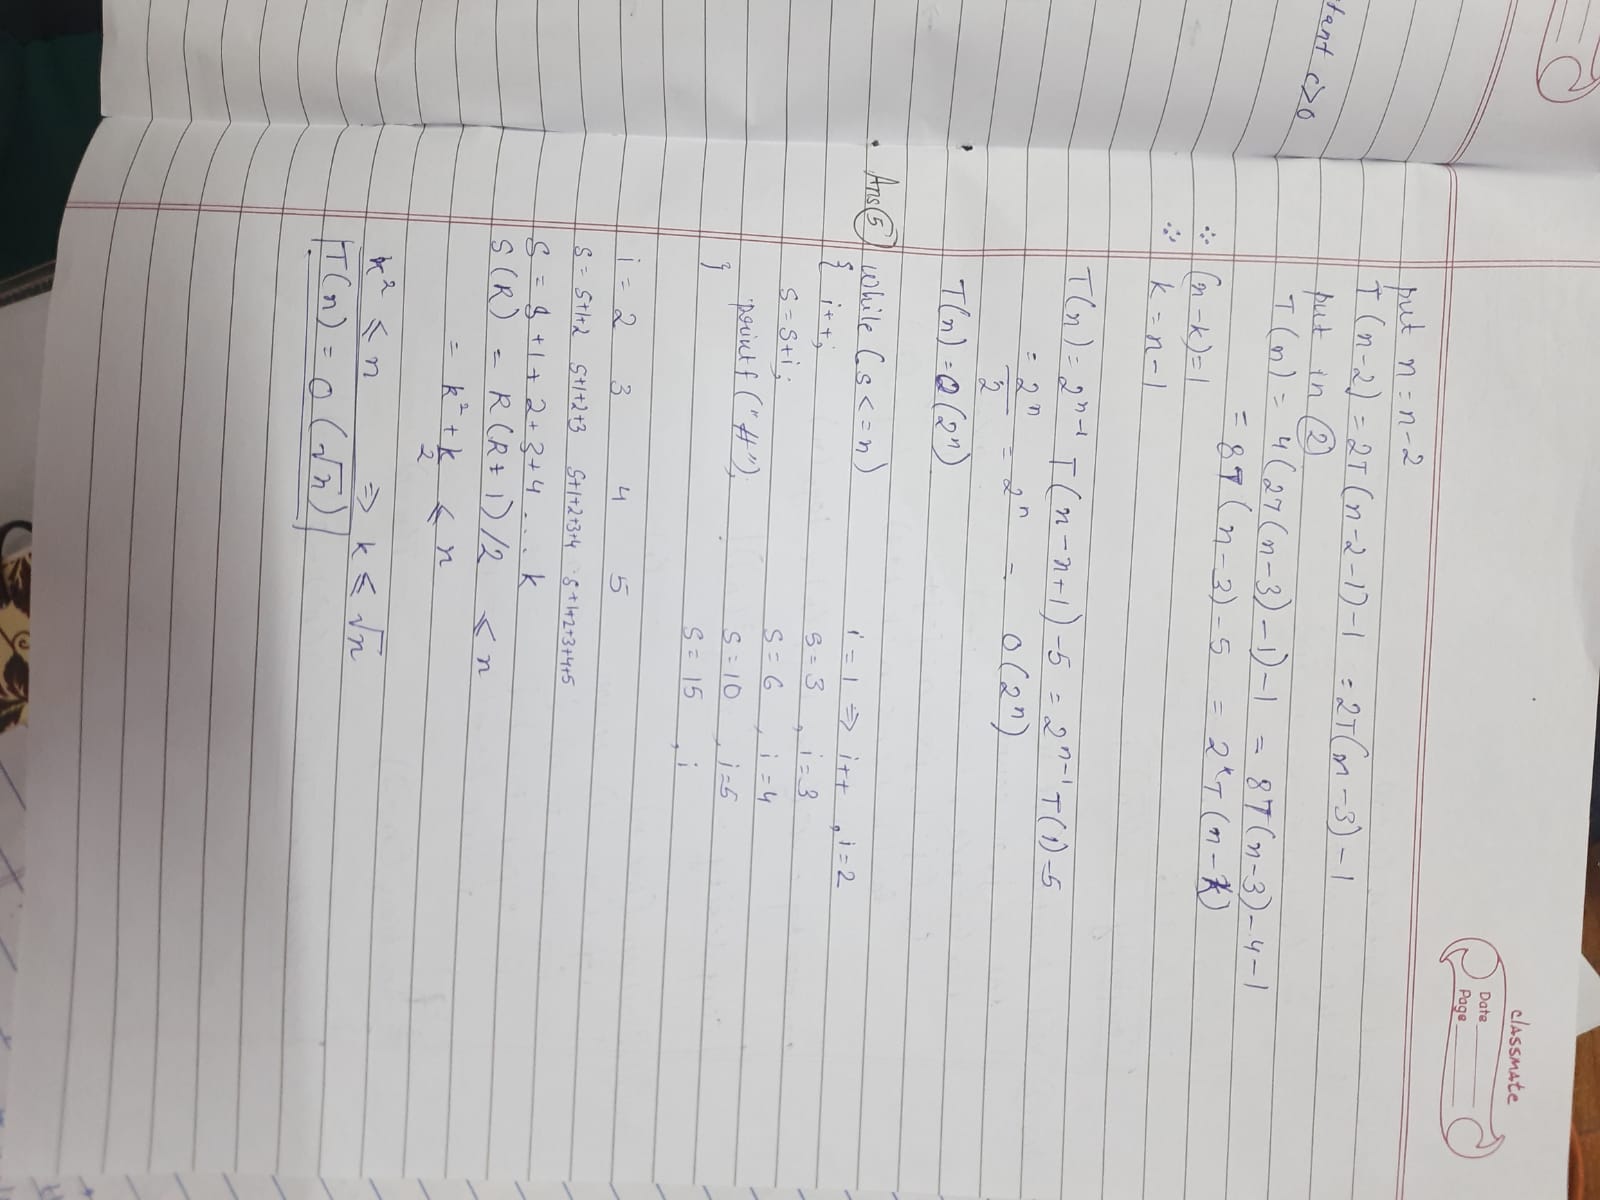 stant c>0
classmate
Date
Page
put n = n-2
T(n-2) = 2T(n-2-1)-1 = 2T(n-3)-1
put in ②
T(n) = 4(2T(n-3)-1)-1 = 8T(n-3)-4-1
= 8T(n-3)-5 = 2^k T(n-k)
∴ (n-k)=1
∴ k = n-1
T(n) = 2^(n-1) T(n-n+1)-5 = 2^(n-1) T(1)-5
= 2^n/2 = 2^n = O(2^n)
T(n) = O(2^n)
Ans ⑤ while(s<=n)
{ i++; i=1 ⇒ i++, i=2
s=s+i; s=3, i=3
printf("#"); s=6, i=4
s=10, i=5
} s=15, i
i = 2 3 4 5
s = s+1+2 s+1+2+3 s+1+2+3+4 s+1+2+3+4+5
S = s+1+2+3+4...k
S(k) = k(k+1)/2 ≤ n
= k²+k/2 ≤ n
k² ≤ n ⇒ k ≤ √n
T(n) = O(√n)